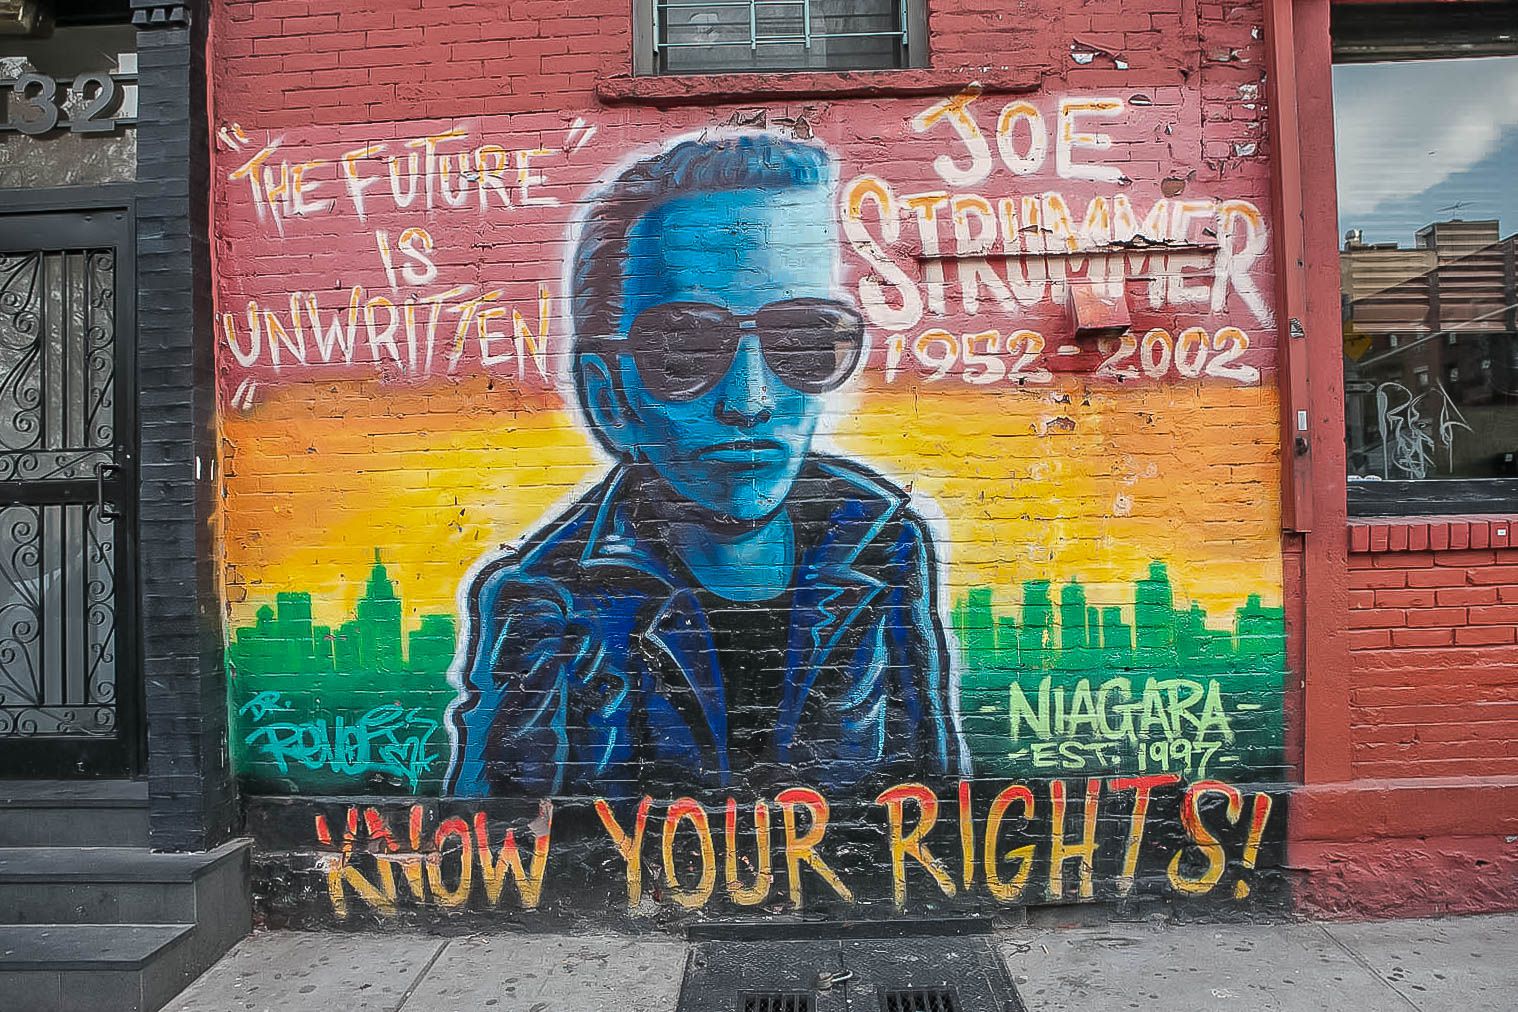 132
"THE FUTURE"
IS
UNWRITTEN
"
JOE
STRUMMER
1952-2002
DR.
REVOLT
-NIAGARA-
-EST. 1997-
KNOW YOUR RIGHTS!